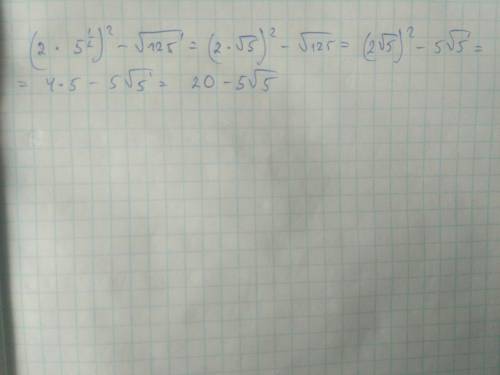 (2 · 5^{1/2})² - √125 = (2 · √5)² - √125 = (2√5)² - 5√5 =
= 4·5 - 5√5 = 20 - 5√5